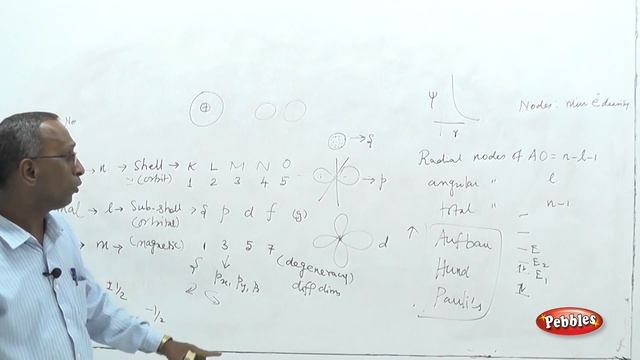 ψ
r
Nodes: min ē density
No
→ s
n → Shell → K L M N O
(orbit) 1 2 3 4 5
→ p
Radial nodes of AO = n-l-1
angular " l
total " n-1
nal → l → Sub-shell → s p d f (g)
(orbital)
d
m → (magnetic) 1 3 5 7
(degeneracy)
s
Px, Py, Pz
diff dirns
±1/2
-1/2
↑ Aufbau
Hund
Paulis
E
E2
E1
Pebbles